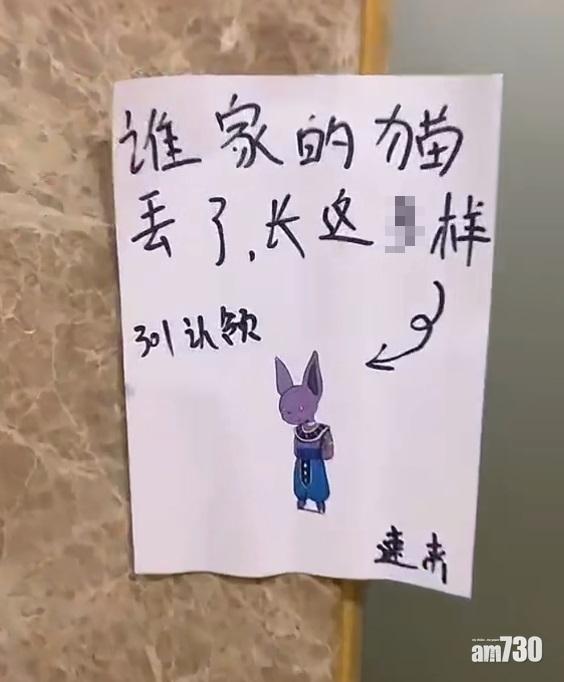 谁家的猫
丢了,长这样
301认领
速来
am730